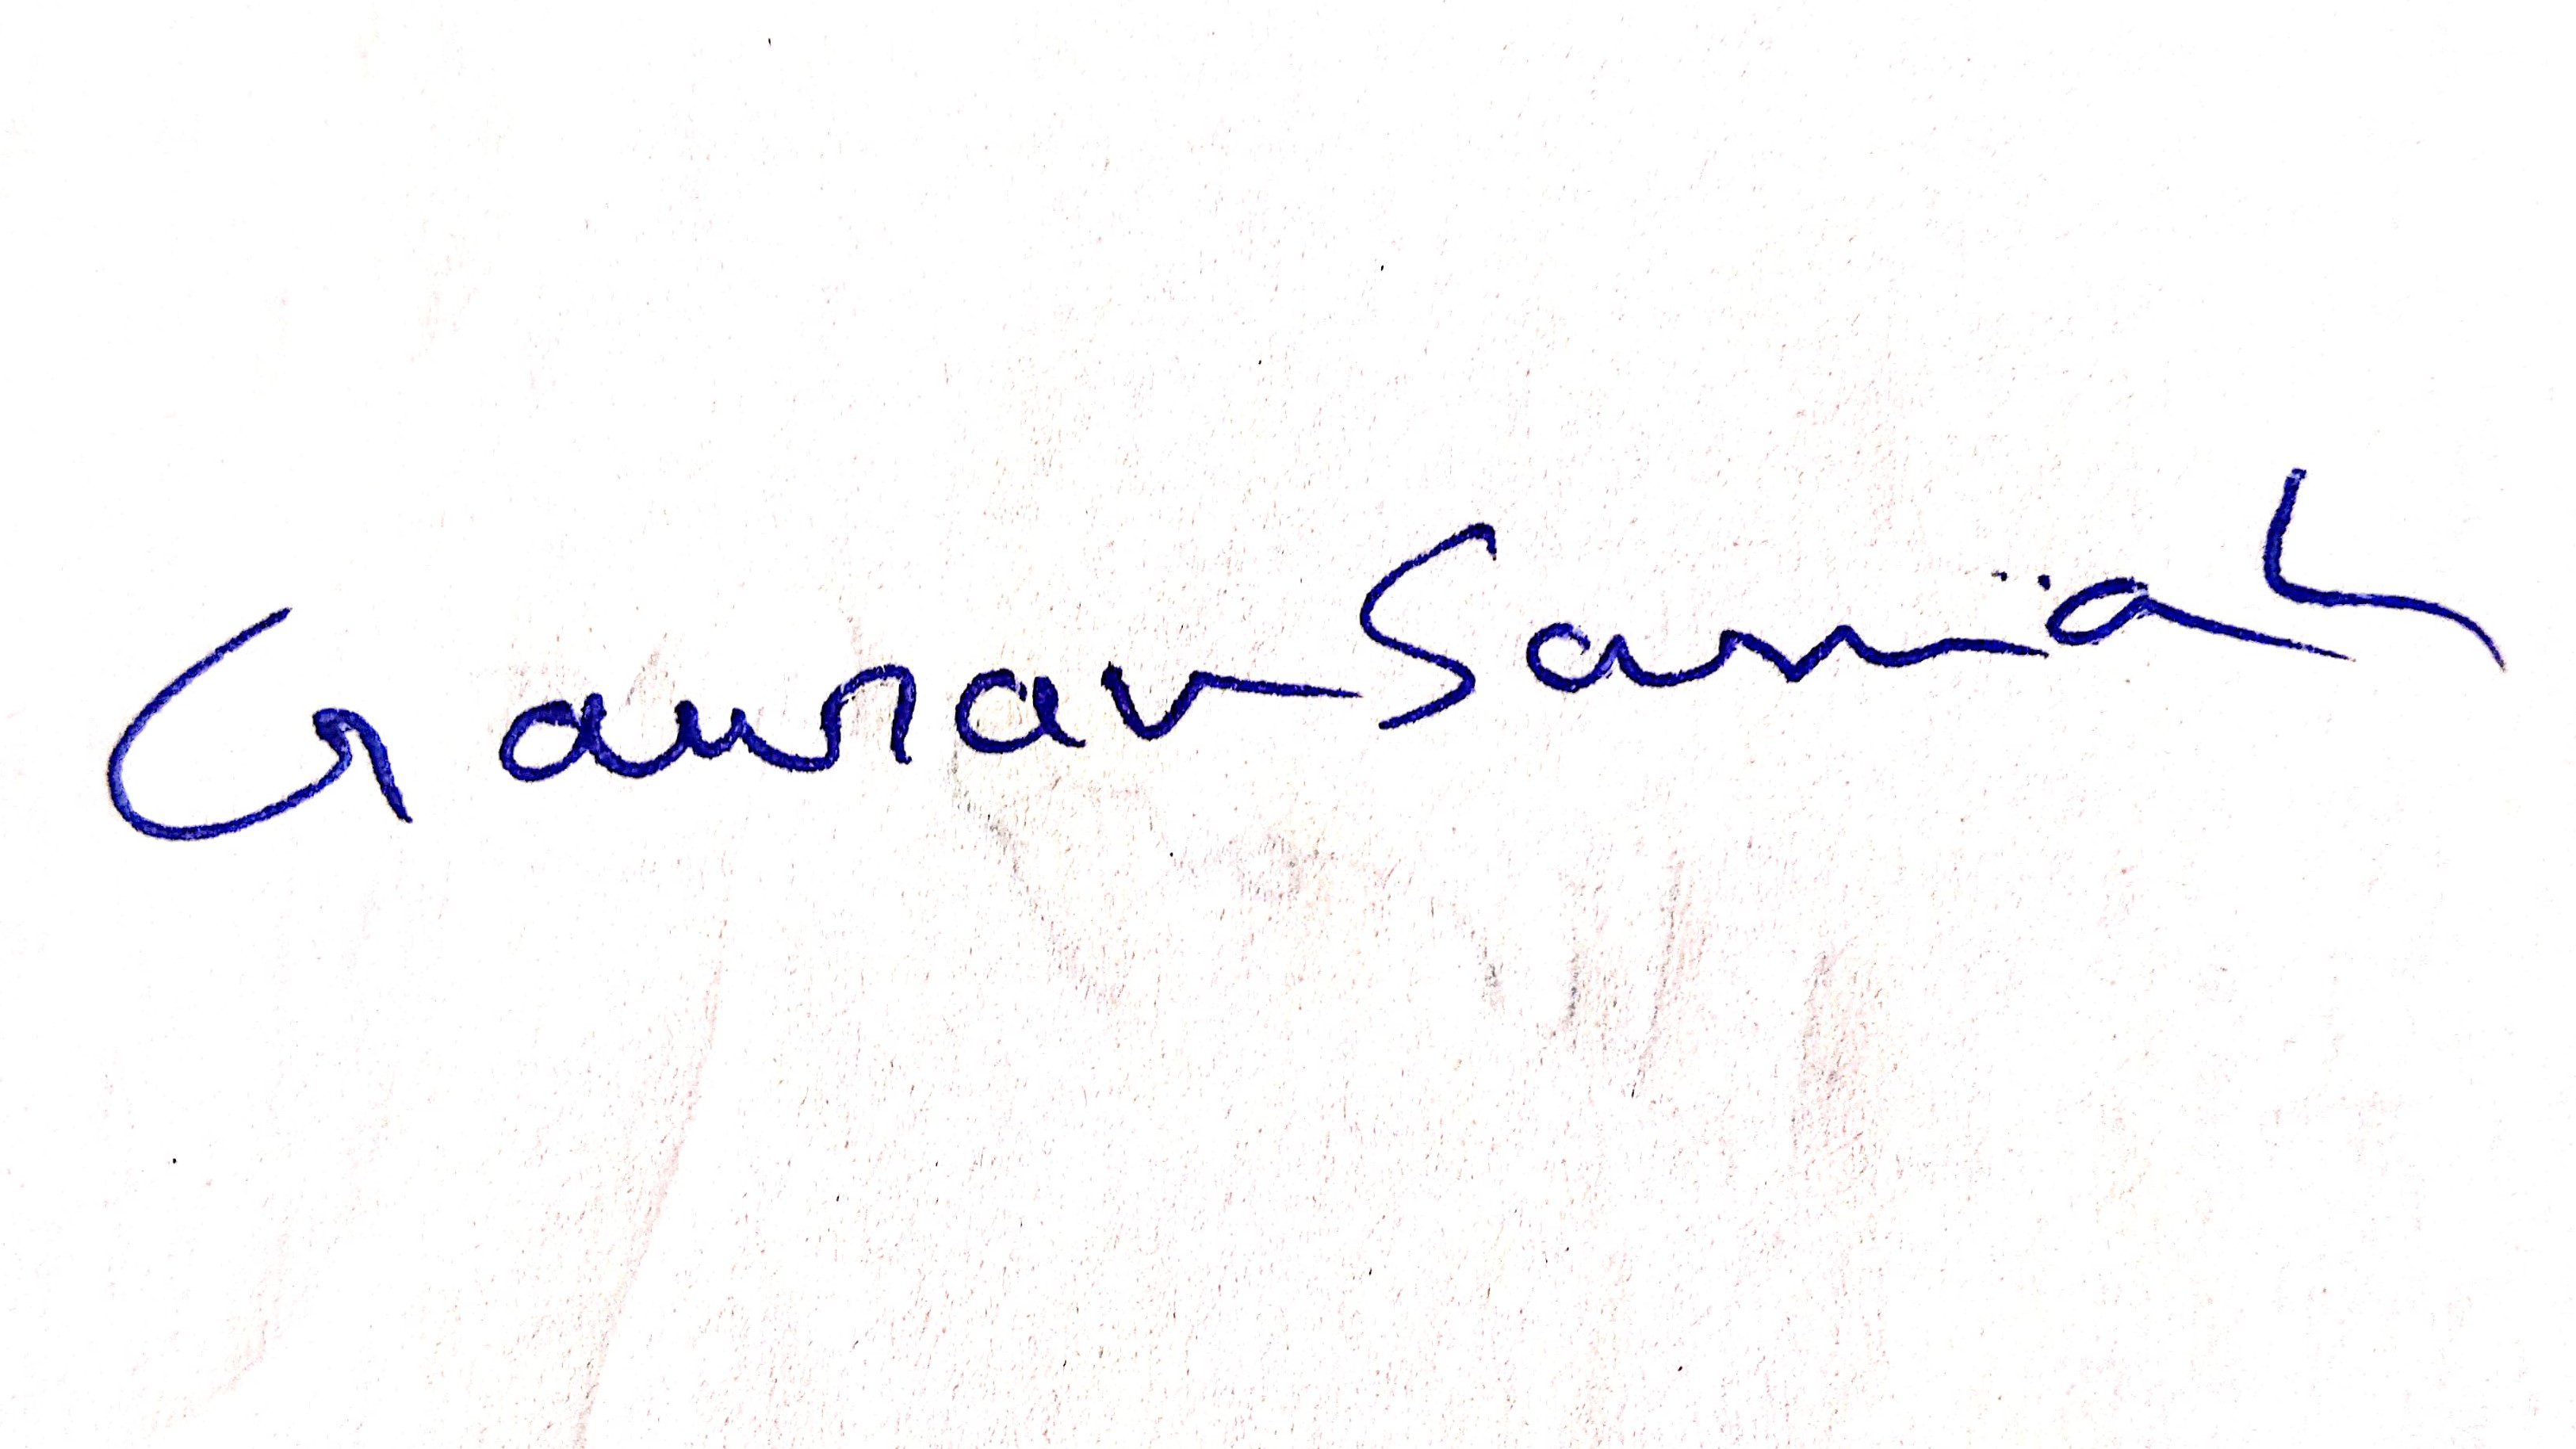 Gaurav Samiah